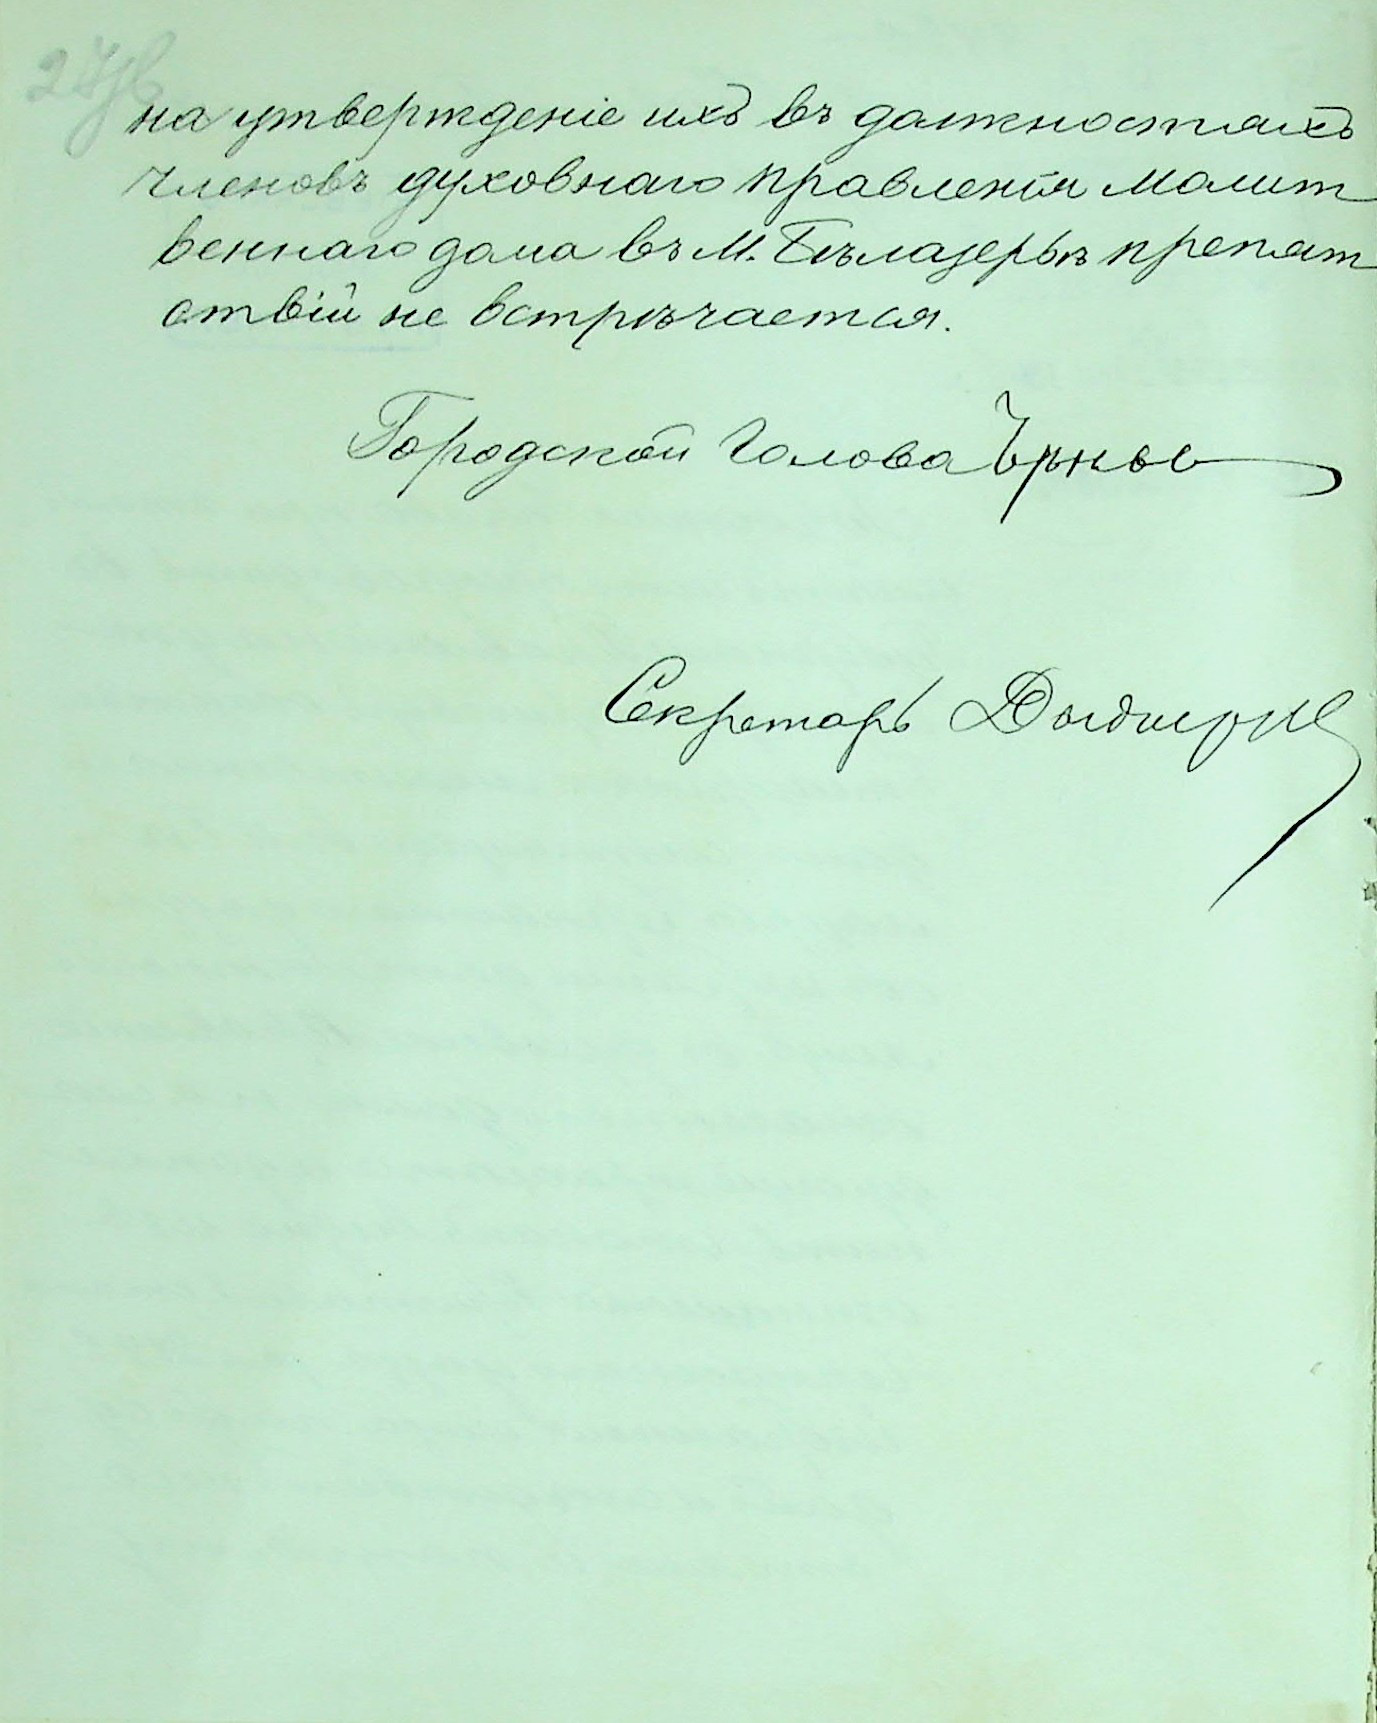 на утвержденіе ихъ въ должностяхъ
членовъ духовнаго правленія молит
веннаго дома въ М. Бѣлазерьѣ препят
ствій не встрѣчается.
Городской Голова
Секретарь